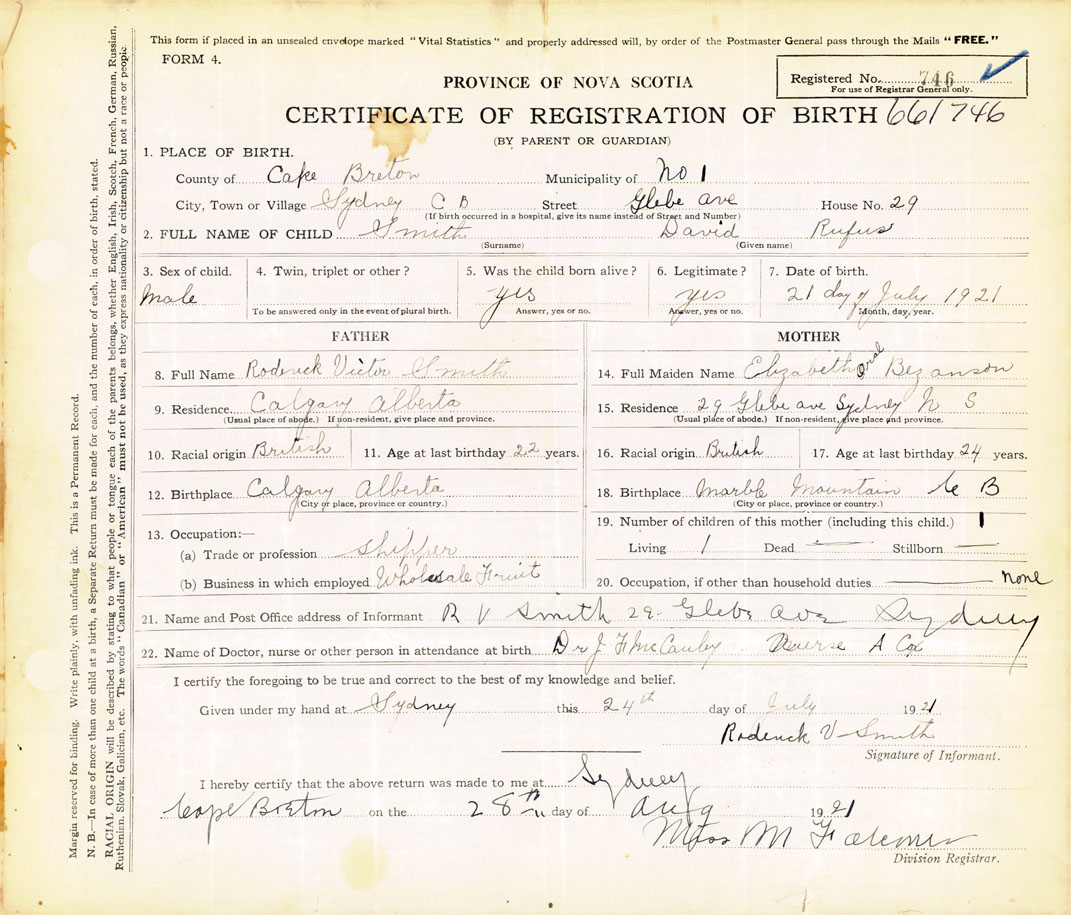 This form if placed in an unsealed envelope marked "Vital Statistics" and properly addressed will, by order of the Postmaster General pass through the Mails "FREE."
FORM 4.
Registered No. 746
For use of Registrar General only.
PROVINCE OF NOVA SCOTIA
CERTIFICATE OF REGISTRATION OF BIRTH 661746
(BY PARENT OR GUARDIAN)
1. PLACE OF BIRTH.
County of Cape Breton Municipality of No 1
City, Town or Village Sydney C B Street Glebe ave House No. 29
(If birth occurred in a hospital, give its name instead of Street and Number)
2. FULL NAME OF CHILD Smith David Rufus
(Surname) (Given name)
3. Sex of child. 4. Twin, triplet or other? 5. Was the child born alive? 6. Legitimate? 7. Date of birth.
Male yes yes 21 day of July 1921
To be answered only in the event of plural birth. Answer, yes or no. Answer, yes or no. Month, day, year.
FATHER
8. Full Name Roderick Victor Smith
9. Residence Calgary Alberta
(Usual place of abode.) If non-resident, give place and province.
10. Racial origin British 11. Age at last birthday 22 years.
12. Birthplace Calgary Alberta
(City or place, province or country.)
13. Occupation:—
(a) Trade or profession shipper
(b) Business in which employed Wholesale Fruit
MOTHER
14. Full Maiden Name Elizabeth Bezanson
15. Residence 29 Glebe ave Sydney N S
(Usual place of abode.) If non-resident, give place and province.
16. Racial origin British 17. Age at last birthday 24 years.
18. Birthplace Marble Mountain C B
(City or place, province or country.)
19. Number of children of this mother (including this child.) 1
Living 1 Dead — Stillborn —
20. Occupation, if other than household duties none
21. Name and Post Office address of Informant R V Smith 29 Glebe Ave Sydney
22. Name of Doctor, nurse or other person in attendance at birth Dr J F McCauley Nurse A Cox
I certify the foregoing to be true and correct to the best of my knowledge and belief.
Given under my hand at Sydney this 24th day of July 1921
Roderick V Smith
Signature of Informant.
I hereby certify that the above return was made to me at Sydney
Cape Breton on the 28th day of Aug 1921
Miss M
Division Registrar.
Margin reserved for binding. Write plainly, with unfading ink. This is a Permanent Record.
N. B.—In case of more than one child at a birth, a Separate Return must be made for each, and the number of each, in order of birth, stated.
RACIAL ORIGIN will be described by stating to what people or tongue each of the parents belongs, whether English, Irish, Scotch, French, German, Russian, Ruthenian, Slovak, Galician, etc. The words "Canadian" or "American" must not be used, as they express nationality or citizenship but not a race or people.